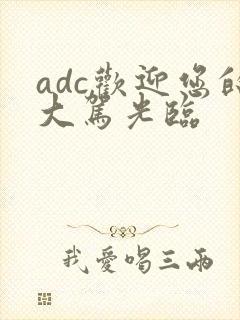 adc歡迎您的
大駕光臨
我愛唱三兩